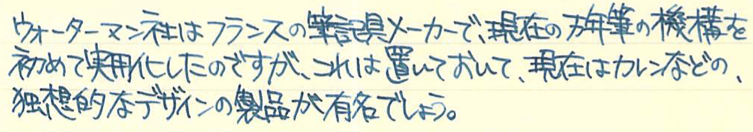 ウォーターマン社はフランスの筆記具メーカーで、現在の万年筆の機構を
初めて実用化したのですが、これは置いておいて、現在はカレンなどの、
独想的なデザインの製品が有名でしょう。